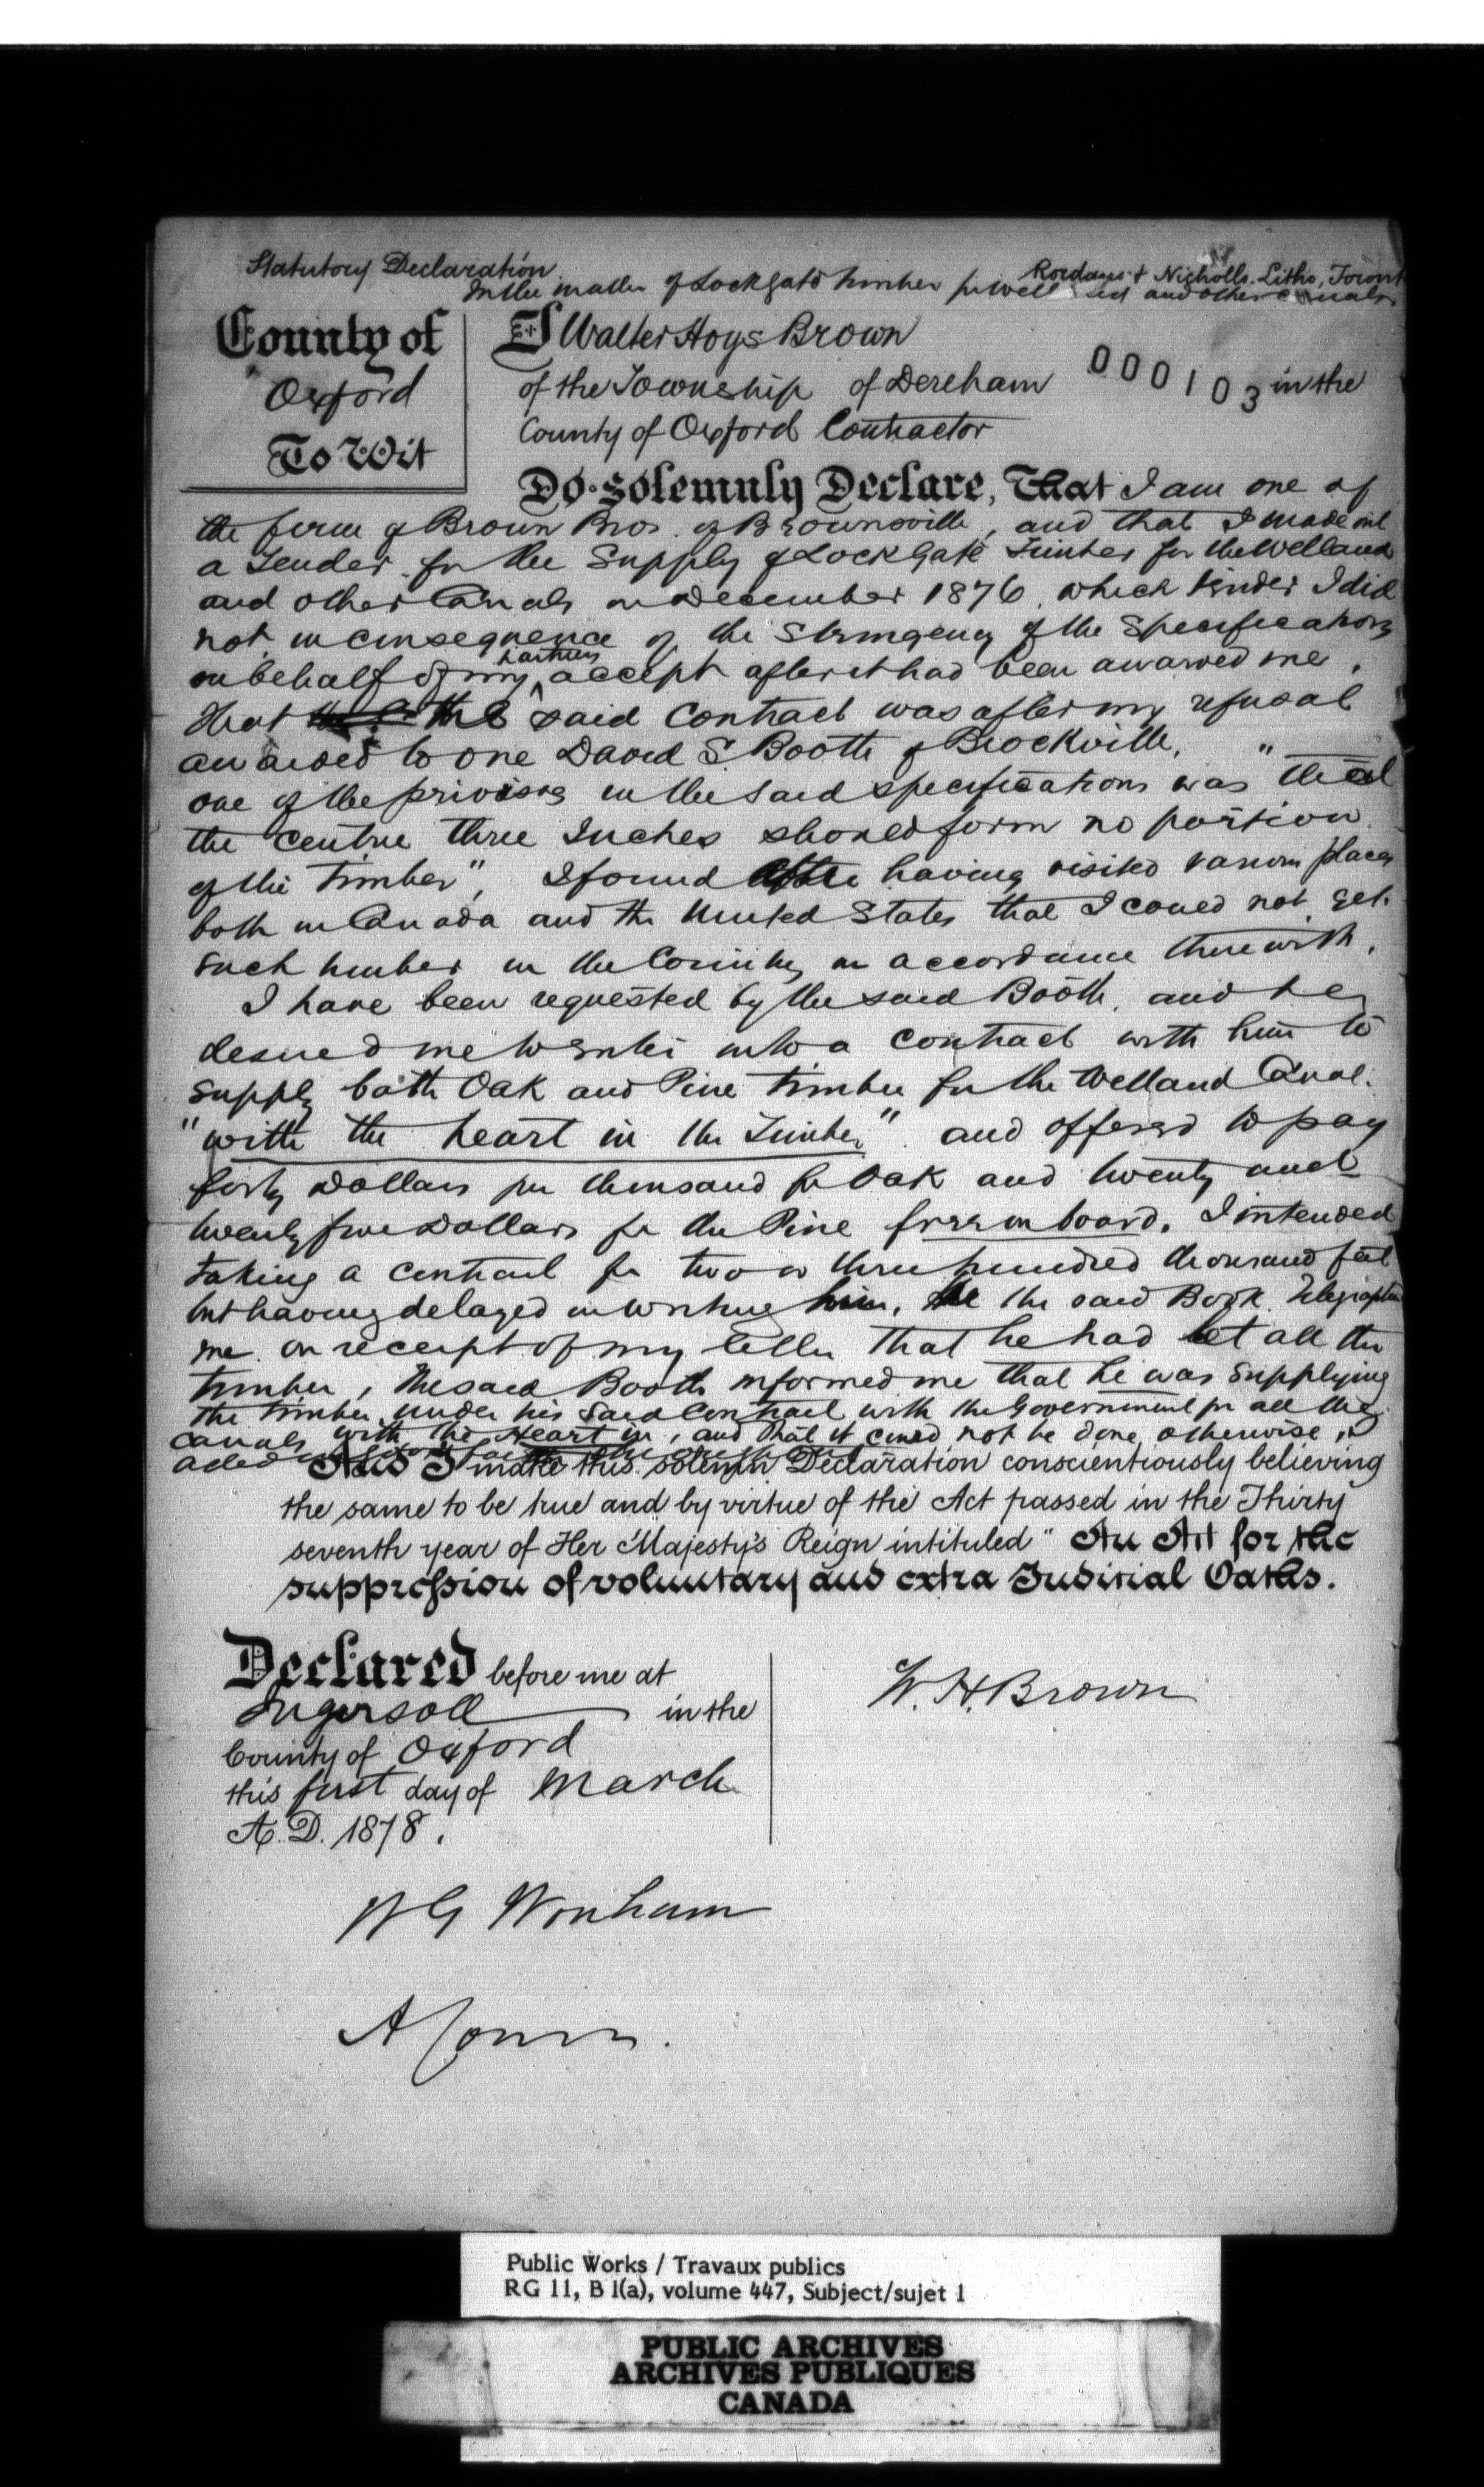 Statutory Declaration
Rordans & Nicholls. Litho, Toront
In the matter of Lock gate timber for Well and and other Canals.
County of
Oxford
To Wit
I Walter Hoys Brown
of the Township of Dereham 000103 in the
County of Oxford Contractor
Do solemnly Declare, That I am one of
the firm of Brown Bros. of Brownsville, and that I made out
a Tender for the Supply of Lock Gate Timber for the Welland
and other Canals in December 1876, which Tender I did
not in consequence of the Stringency of the Specifications
on behalf of my partners accept after it had been awarded me.
That the said Contract was after my refusal
awarded to one David S. Booth of Brockville.
one of the provisos in the said specifications was "that
the centre three Inches should form no portion
of the Timber", I found after having visited various places
both in Canada and the United States that I could not get
such timber in the Country in accordance therewith.
I have been requested by the said Booth, and he
desired me to enter into a contract with him to
supply both Oak and Pine timber for the Welland Canal.
"with the heart in the Timber" and offered to pay
forty Dollars per thousand for Oak and twenty and
twenty five Dollars for the Pine free on board. I intended
taking a contract for two or three hundred thousand feet
but having delayed in writing him, the said Booth Telegraphed
me on receipt of my letter that he had let all the
timber, the said Booth informed me that he was supplying
the timber under his said Contract with the Government for all the
canals with the Heart in, and that it could not be done otherwise,
And I make this solemn Declaration conscientiously believing
the same to be true and by virtue of the Act passed in the Thirty
seventh year of Her Majesty's Reign intituled "An Act for the
suppression of voluntary and extra Judicial Oaths.
Declared before me at
Ingersoll in the
County of Oxford
this first day of March
A.D. 1878.
W.H. Brown
W G Wonham
A
Public Works / Travaux publics
RG 11, B 1(a), volume 447, Subject/sujet 1
PUBLIC ARCHIVES
ARCHIVES PUBLIQUES
CANADA